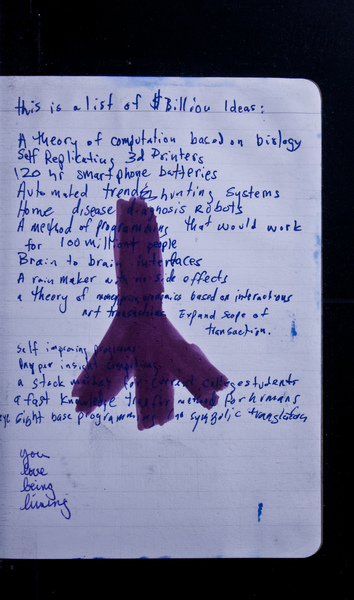 this is a list of $Billion Ideas:
A theory of computation based on biology
Self Replicating 3d Printers
120 hr smartphone batteries
Automated trend hunting systems
Home disease diagnosis Robots
A method of programming that would work
for 100 million people
Brain to brain interfaces
A rain maker with no side effects
a theory of based on interactions
not transactions. Expand scope of
transaction.
Self improving programs
insight computing
a stock market for current college students
a fast knowledge transfer method for humans
eye sight base programming no symbolic translation
you
love
being
living